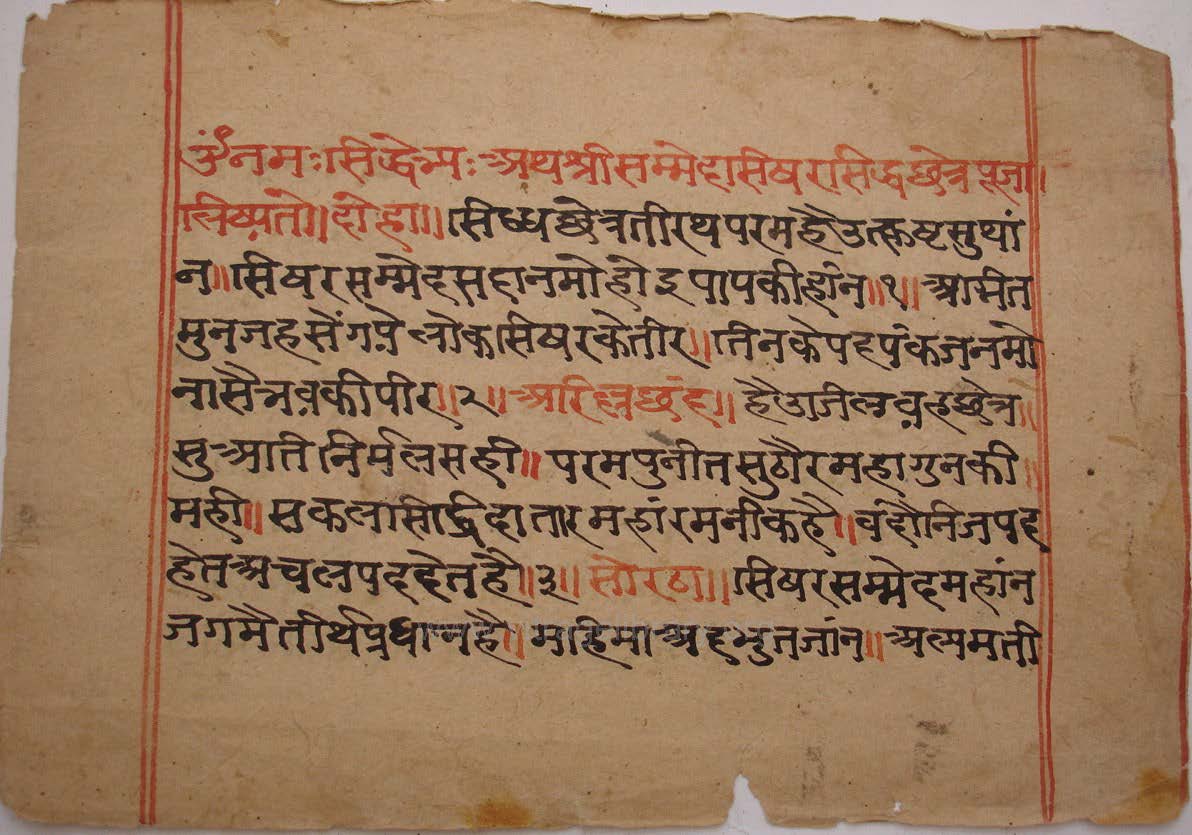 ॐनमःसिद्धेभ्यः अथश्रीसम्मेदासिषरसिद्धछेत्रपूजा॥
लिष्यते॥दोहा॥सिध्धछेत्रतीरथपरमहैउत्कृष्टसुथां
न॥सिषरसम्मेदसदानमोहोइपापकीहांन॥१॥अगनित
मुनजहसेंगए लोकसिषरकेतीर॥तिनकेपदपंकजनमो
नासैभवकीपीर॥२॥अरिल्लछंद॥हैउजिलवहछेत्र॥
सुअतिनिर्मलसही॥परमपुनीतसुठौरमहागुनकी
मही॥सकलसिद्धिदातारमहांरमनीकहै॥वंदौनिजपद
हेतअचलपददेतहै॥३॥सोरठा॥सिषरसम्मेदमहांन
जगमैतीर्थप्रधांणहै॥महिमाअदभुतजांन॥अल्पमती